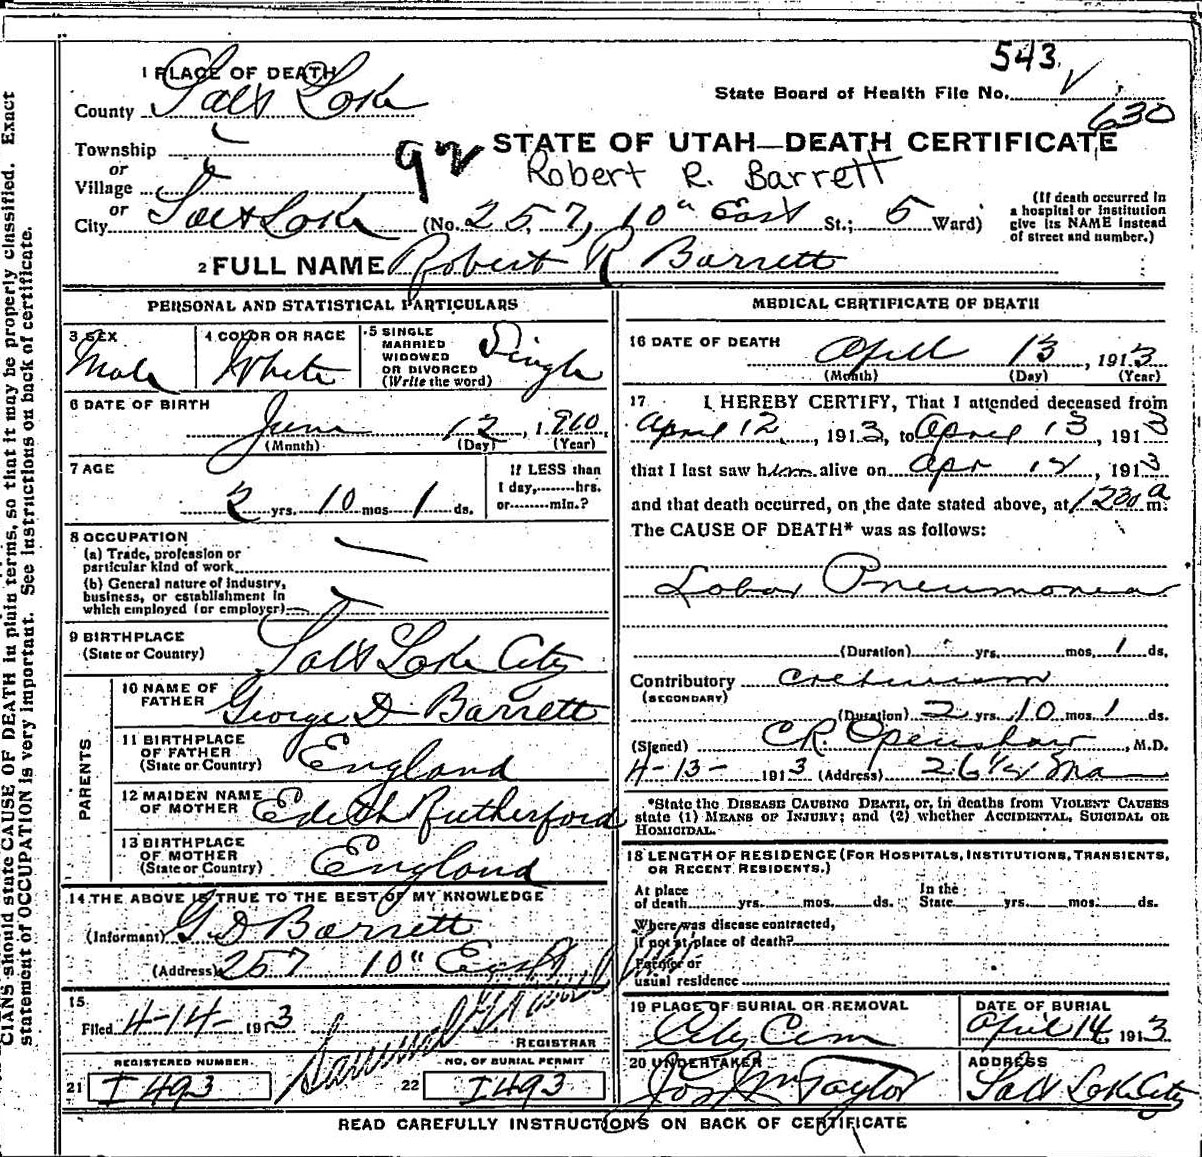 543
1 PLACE OF DEATH
State Board of Health File No. √
630
County Salt Lake
STATE OF UTAH—DEATH CERTIFICATE
Township
or
92
Robert R. Barrett
Village
or
City Salt Lake (No. 257, 10" East St.; 5 Ward)
(If death occurred in
a hospital or institution
give its NAME instead
of street and number.)
2 FULL NAME Robert R Barrett
PERSONAL AND STATISTICAL PARTICULARS
3 SEX
Male
4 COLOR OR RACE
White
5 SINGLE
MARRIED
WIDOWED
OR DIVORCED
(Write the word)
Single
6 DATE OF BIRTH
June 12, 1910
(Month) (Day) (Year)
7 AGE
2 yrs. 10 mos. 1 ds.
If LESS than
1 day,........hrs.
or........min.?
8 OCCUPATION
(a) Trade, profession or
particular kind of work
(b) General nature of industry,
business, or establishment in
which employed (or employer)
9 BIRTHPLACE
(State or Country)
Salt Lake City
PARENTS
10 NAME OF
FATHER
George D Barrett
11 BIRTHPLACE
OF FATHER
(State or Country)
England
12 MAIDEN NAME
OF MOTHER
Edith Rutherford
13 BIRTHPLACE
OF MOTHER
(State or Country)
England
14 THE ABOVE IS TRUE TO THE BEST OF MY KNOWLEDGE
(Informant) G D Barrett
(Address) 257 10" East
15
Filed 4-14- 1913
REGISTRAR
REGISTERED NUMBER.
21 I 493
NO. OF BURIAL PERMIT
22 I 493
MEDICAL CERTIFICATE OF DEATH
16 DATE OF DEATH
April 13, 1913
(Month) (Day) (Year)
17 I HEREBY CERTIFY, That I attended deceased from
April 12, 1913, to April 13, 1913
that I last saw him alive on Apr 12, 1913
and that death occurred, on the date stated above, at 1230 a m.
The CAUSE OF DEATH* was as follows:
Lobar Pneumonia
(Duration) yrs. mos. 1 ds.
Contributory
(SECONDARY)
(Duration) 2 yrs. 10 mos. 1 ds.
(Signed) C R. Openshaw, M.D.
4-13- 1913 (Address)
*State the DISEASE CAUSING DEATH, or, in deaths from VIOLENT CAUSES
state (1) MEANS OF INJURY; and (2) whether ACCIDENTAL, SUICIDAL OR
HOMICIDAL.
18 LENGTH OF RESIDENCE (FOR HOSPITALS, INSTITUTIONS, TRANSIENTS,
OR RECENT RESIDENTS.)
At place
of death........yrs.......mos.......ds.
In the
State........yrs.......mos.......ds.
Where was disease contracted,
if not at place of death?
Former or
usual residence
19 PLACE OF BURIAL OR REMOVAL
City Cem
DATE OF BURIAL
April 14, 1913
20 UNDERTAKER
Jos Wm Taylor
ADDRESS
Salt Lake City
READ CAREFULLY INSTRUCTIONS ON BACK OF CERTIFICATE
CIANS should state CAUSE OF DEATH in plain terms, so that it may be properly classified. Exact
statement of OCCUPATION is very important. See instructions on back of certificate.